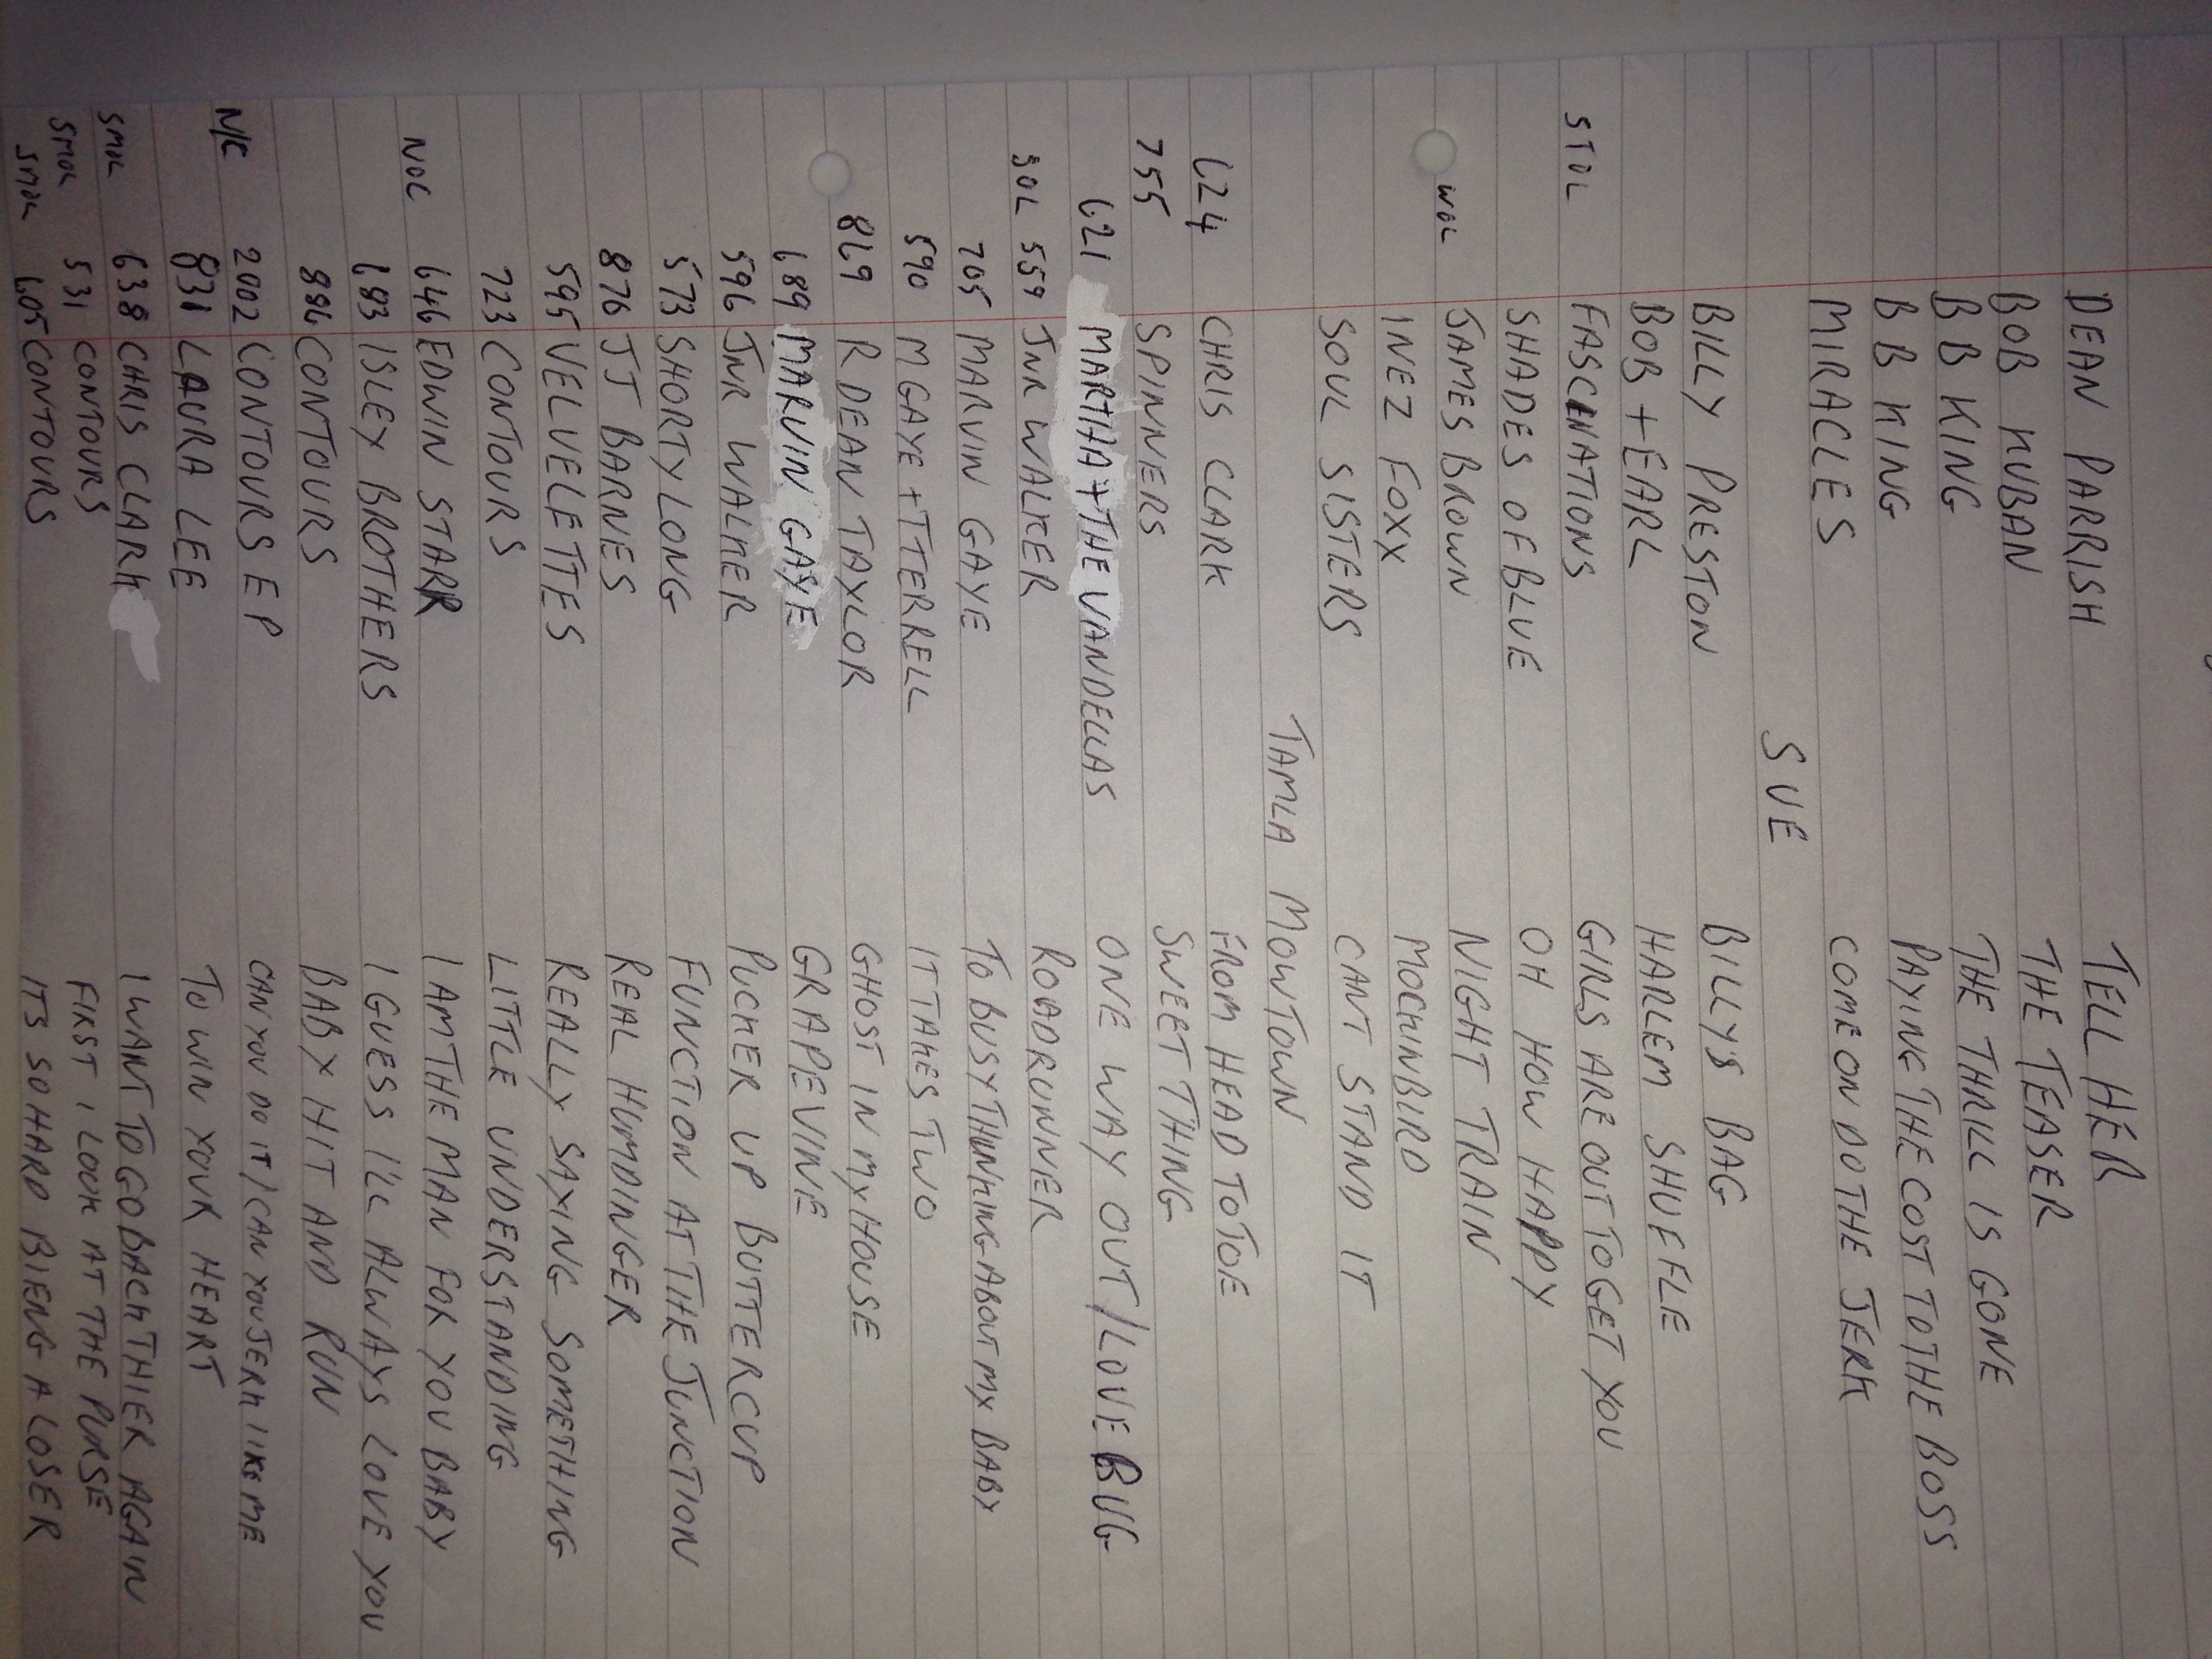 DEAN PARRISH TELL HER
BOB KUBAN THE TEASER
B B KING THE THRILL IS GONE
B B KING PAYING THE COST TO THE BOSS
MIRACLES COME ON DO THE JERK
SUE
BILLY PRESTON BILLYS BAG
BOB + EARL HARLEM SHUFFLE
STOL FASCINATIONS GIRLS ARE OUT TO GET YOU
SHADES OF BLUE OH HOW HAPPY
WOL JAMES BROWN NIGHT TRAIN
INEZ FOXX MOCKINBIRD
SOUL SISTERS CANT STAND IT
TAMLA MOWTOWN
624 CHRIS CLARK FROM HEAD TO TOE
755 SPINNERS SWEET THING
621 MARTHA + THE VANDELLAS ONE WAY OUT / LOVE BUG
SOL 559 JNR WALKER ROADRUNNER
705 MARVIN GAYE TO BUSY THINKING ABOUT MY BABY
590 M GAYE + T TERRELL IT TAKES TWO
869 R DEAN TAYLOR GHOST IN MY HOUSE
689 MARVIN GAYE GRAPEVINE
596 JNR WALKER PUCKER UP BUTTERCUP
573 SHORTY LONG FUNCTION AT THE JUNCTION
876 JJ BARNES REAL HUMDINGER
595 VELVELETTES REALLY SAYING SOMETHING
723 CONTOURS LITTLE UNDERSTANDING
NOC 646 EDWIN STARR I AM THE MAN FOR YOU BABY
683 ISLEY BROTHERS I GUESS I'LL ALWAYS LOVE YOU
886 CONTOURS BABY HIT AND RUN
N/C 2002 CONTOURS EP CAN YOU DO IT / CAN YOU JERK LIKE ME
831 LAURA LEE TO WIN YOUR HEART
SMOL 638 CHRIS CLARK I WANT TO GO BACK THIER AGAIN
SMOL 531 CONTOURS FIRST I LOOK AT THE PURSE
SMOL 605 CONTOURS ITS SO HARD BIENG A LOSER